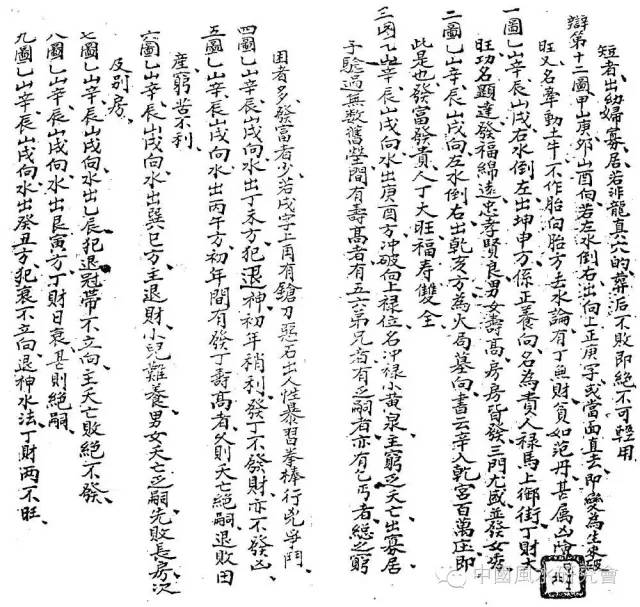 短者出幼婦寡居若非龍真穴的葬后不敗即絕不可輕用
辯第十二圖甲山庚卯山酉向若左水倒右出向上正庚字或當面直去即變為生來破
旺又名牽動土牛不作胎向胎方去水論有丁無財貧如范丹甚屬凶險
一圖乙山辛辰山戌右水倒左出坤申方係正養向名為貴人祿馬上御街丁財大
旺功名顯達發福綿遠忠孝賢良男女壽高房房皆發三門尤盛並發女秀
二圖乙山辛辰山戌向左水倒右出乾亥方為火局墓向書云辛入乾宮百萬庄即
此是也發富發貴人丁大旺福壽雙全
三圖乙山辛辰山戌向水出庚酉方冲破向上祿位名冲祿小黃泉主窮乏夭亡出寡居
予驗過無數舊塋間有壽高者有五六弟兄者有乏嗣者亦有乞丐者總之窮
困者多發富者少若戌字上再有鎗刀惡石出人性暴習拳棒行兇爭鬥
四圖乙山辛辰山戌向水出丁未方犯退神初年稍利發丁不發財亦不發凶
五圖乙山辛辰山戌向水出丙午方初年間有發丁壽高者久則夭亡絕嗣退敗田
產窮苦不利
六圖乙山辛辰山戌向水出巽巳方主退財小兒難養男女夭亡乏嗣先敗長房次
及別房
七圖乙山辛辰山戌向水出乙辰犯退冠帶不立向主夭亡敗絕不發
八圖乙山辛辰山戌向水出艮寅方丁財日衰甚則絕嗣
九圖乙山辛辰山戌向水出癸丑方犯衰不立向退神水法丁財兩不旺
中國風水研究會